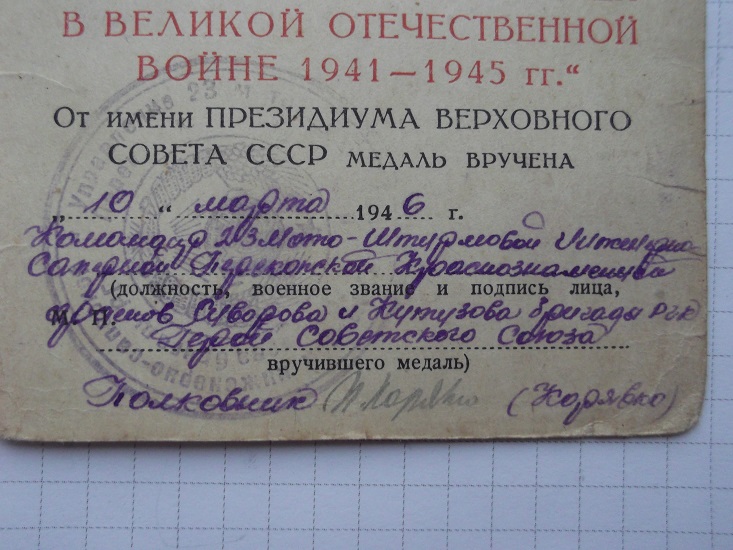 В ВЕЛИКОЙ ОТЕЧЕСТВЕННОЙ
ВОЙНЕ 1941—1945 гг.“
От имени ПРЕЗИДИУМА ВЕРХОВНОГО
СОВЕТА СССР МЕДАЛЬ ВРУЧЕНА
„10“ марта 1946 г.
Командир 23 Мото-Штурмовой Инженерно
Саперной Перекопской Краснознаменной
(должность, военное звание и подпись лица,
орденов Суворова и Кутузова бригады РГК
М. П. Герой Советского Союза
вручившего медаль)
Полковник (Корявко)
Управление 23